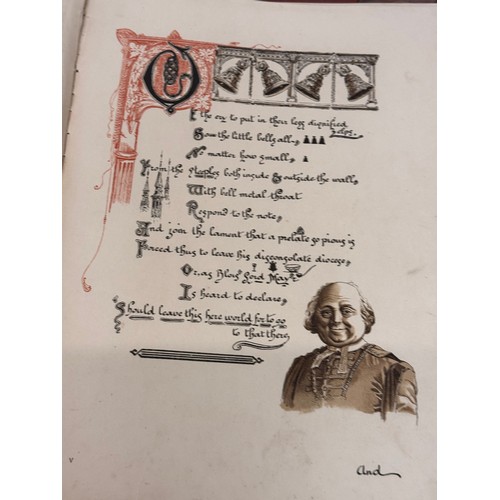 O
f the cry to put in their less dignified
yelps,
How the little bells all,
No matter how small,
From the steeples both inside & outside the wall,
With bell metal throat
Respond to the note,
And join the lament that a prelate so pious is
Forced thus to leave his disconsolate diocese,
Or, as Blois' Lord May'r
Is heard to declare,
Should leave this here world for to go
to that there,
V
And